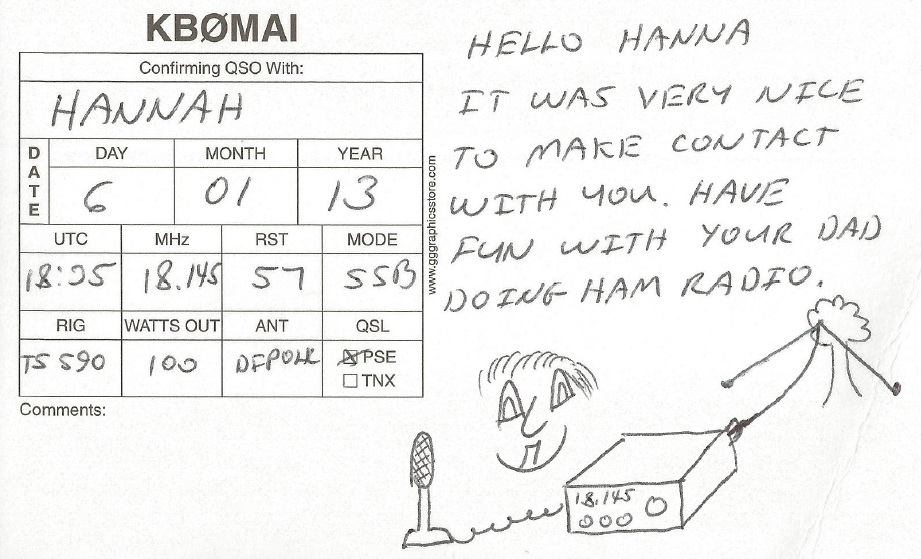 KBØMAI
Confirming QSO With:
HANNAH
DATE
DAY MONTH YEAR
6 01 13
UTC MHz RST MODE
18:05 18.145 57 SSB
RIG WATTS OUT ANT QSL
TS 590 100 DIPOLE ☒ PSE
☐ TNX
Comments:
www.gggraphicsstore.com
HELLO HANNA
IT WAS VERY NICE
TO MAKE CONTACT
WITH YOU. HAVE
FUN WITH YOUR DAD
DOING HAM RADIO.
18.145